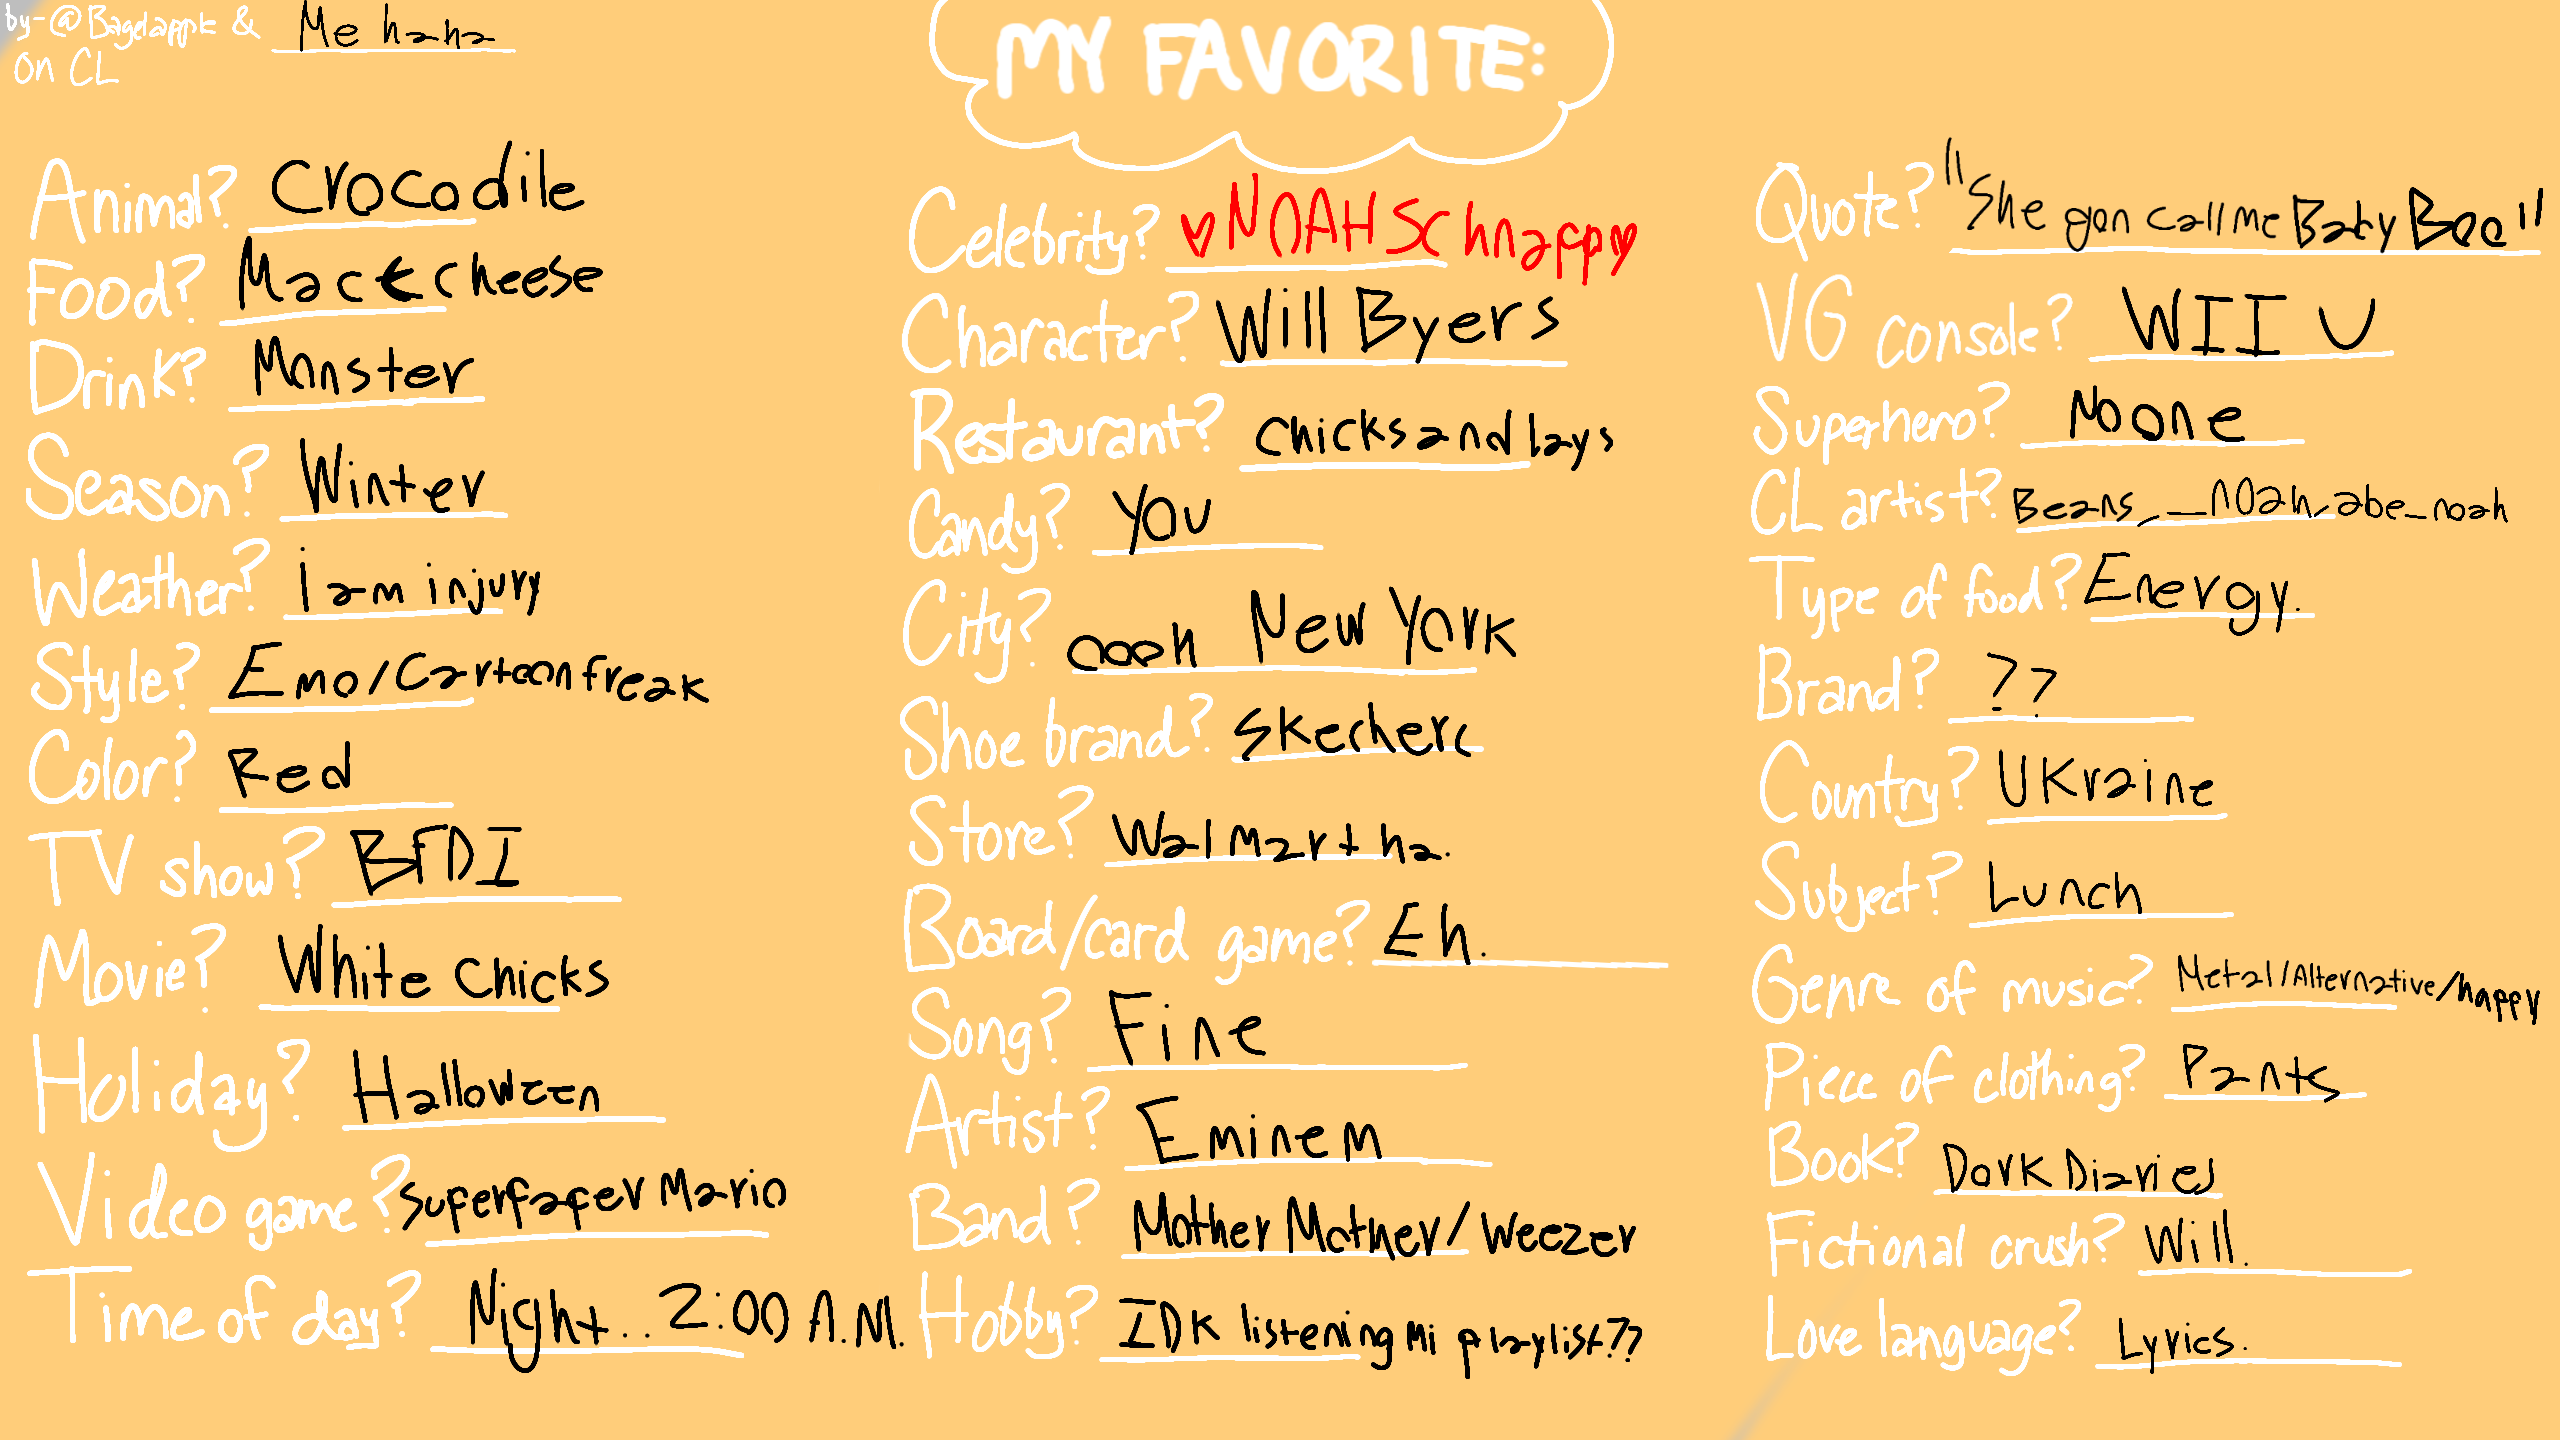 by-@Bagelapple & Me haha
on CL
MY FAVORITE:
Animal? Crocodile
Food? Mac & cheese
Drink? Monster
Season? Winter
Weather? i am injury
Style? Emo/Cartoon freak
Color? Red
TV show? BFDI
Movie? White Chicks
Holiday? Halloween
Video game? Super Paper Mario
Time of day? Night.. 2:00 A.M.
Celebrity? ♡NOAH SChnapp♡
Character? Will Byers
Restaurant? Chicks and lays
Candy? You
City? oooh New York
Shoe brand? Skecherc
Store? Walmart ha.
Board/card game? Eh.
Song? Fine
Artist? Eminem
Band? Mother Mother/Weezer
Hobby? IDK listening Mi playlist??
Quote? "She gon call me Baby Boo"
VG console? WII U
Superhero? No one
CL artist? Beans, __n0ah, abe_noah
Type of food? Energy.
Brand? ??
Country? Ukraine
Subject? Lunch
Genre of music? Metal/Alternative/happy
Piece of clothing? Pants
Book? Dork Diaries
Fictional crush? Will.
Love language? Lyrics.